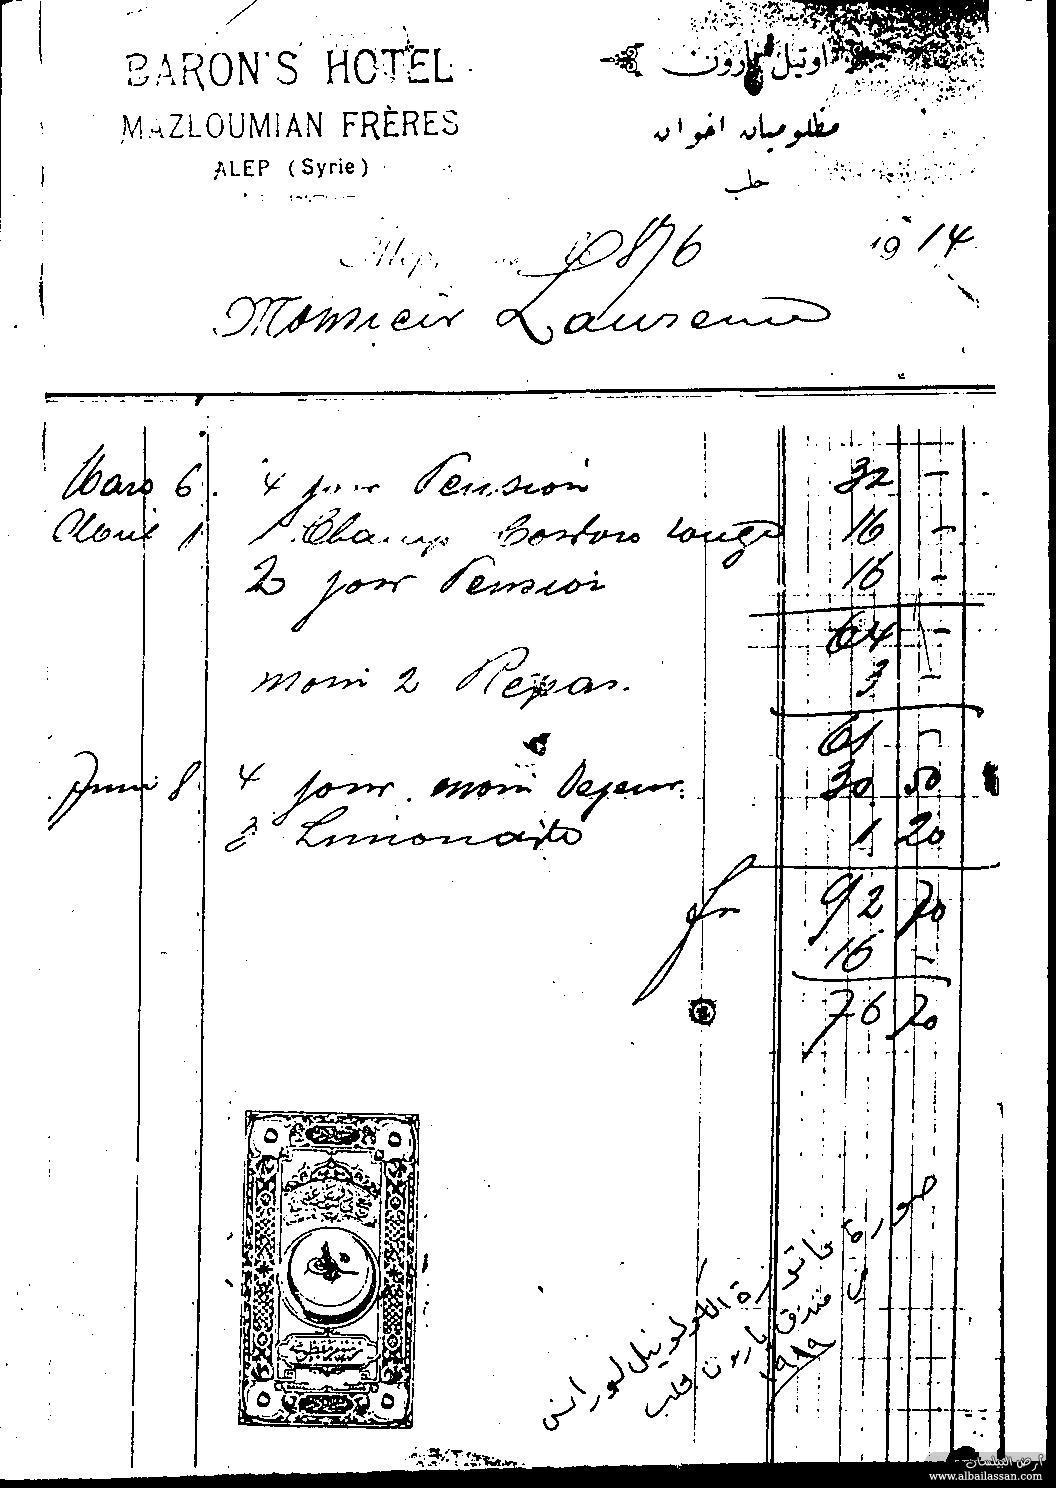 BARON'S HOTEL
MAZLOUMIAN FRÈRES
ALEP (Syrie)
اوتيل بارون
مظلوميان اخوان
حلب
Alep, 8/6 1914
Monsieur Laurence
Mars 6. 4 jour Pension 32 -
Avril 1 1 Champ Cordon rouge 16 -
2 jour Pension 16 -
64 -
moin 2 Repas. 3 -
61 -
Juin 8 4 jour moin Dejeur. 30 50
3 Limonade 1 20
fr 92 70
16 -
76 70
صورة فاتورة الكولونيل لورانس
في فندق بارون حلب
١٩٨٩
أرض البيلسان
www.albailassan.com